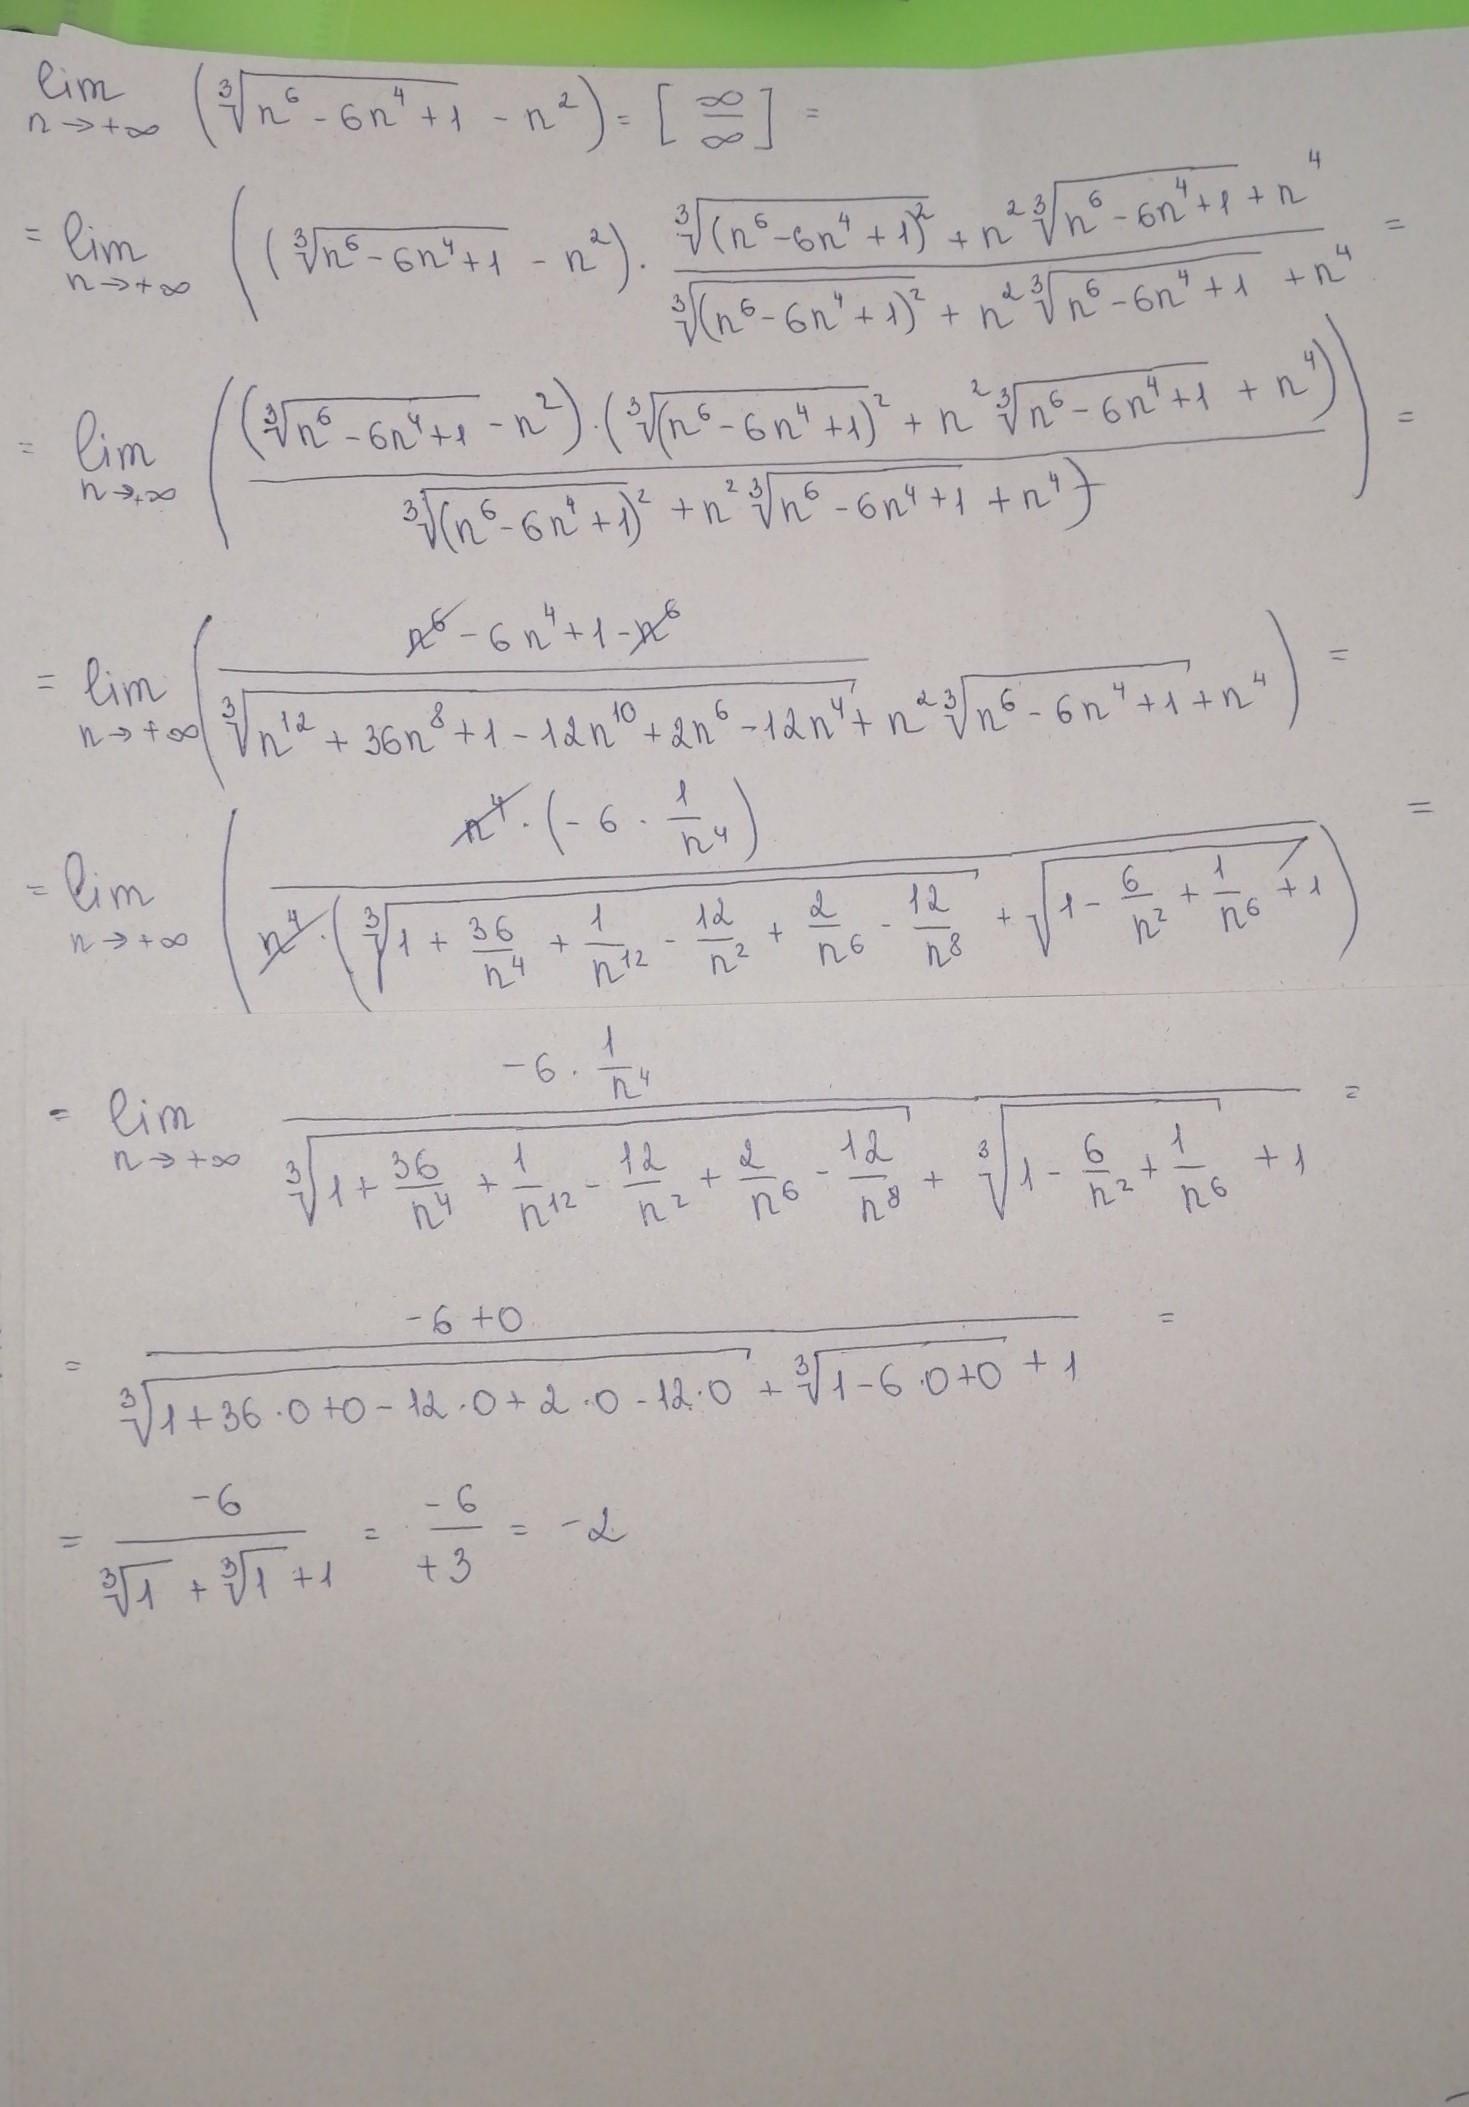 lim n→+∞ (∛(n⁶ - 6n⁴ + 1) - n²) = [∞/∞] =
= lim n→+∞ ((∛(n⁶ - 6n⁴ + 1) - n²) · (∛((n⁶ - 6n⁴ + 1)²) + n² ∛(n⁶ - 6n⁴ + 1) + n⁴) / (∛((n⁶ - 6n⁴ + 1)²) + n² ∛(n⁶ - 6n⁴ + 1) + n⁴) =
= lim n→+∞ ( (∛(n⁶ - 6n⁴ + 1) - n²) · (∛(n⁶ - 6n⁴ + 1)² + n² ∛(n⁶ - 6n⁴ + 1) + n⁴) / ∛(n⁶ - 6n⁴ + 1)² + n² ∛(n⁶ - 6n⁴ + 1) + n⁴) ) =
= lim n→+∞ ( (n⁶ - 6n⁴ + 1 - n⁶) / (∛(n¹² + 36n⁸ + 1 - 12n¹⁰ + 2n⁶ - 12n⁴) + n² ∛(n⁶ - 6n⁴ + 1) + n⁴) ) =
= lim n→+∞ ( n⁴ · (-6 · 1/n⁴) / n⁴ · (∛(1 + 36/n⁴ + 1/n¹² - 12/n² + 2/n⁶ - 12/n⁸) + √(1 - 6/n² + 1/n⁶ + 1) ) =
= lim n→+∞ (-6 · 1/n⁴) / (∛(1 + 36/n⁴ + 1/n¹² - 12/n² + 2/n⁶ - 12/n⁸) + ∛(1 - 6/n² + 1/n⁶) + 1) =
= (-6 + 0) / (∛(1 + 36 · 0 + 0 - 12 · 0 + 2 · 0 - 12 · 0) + ∛(1 - 6 · 0 + 0) + 1) =
= -6 / (∛1 + ∛1 + 1) = -6 / +3 = -2